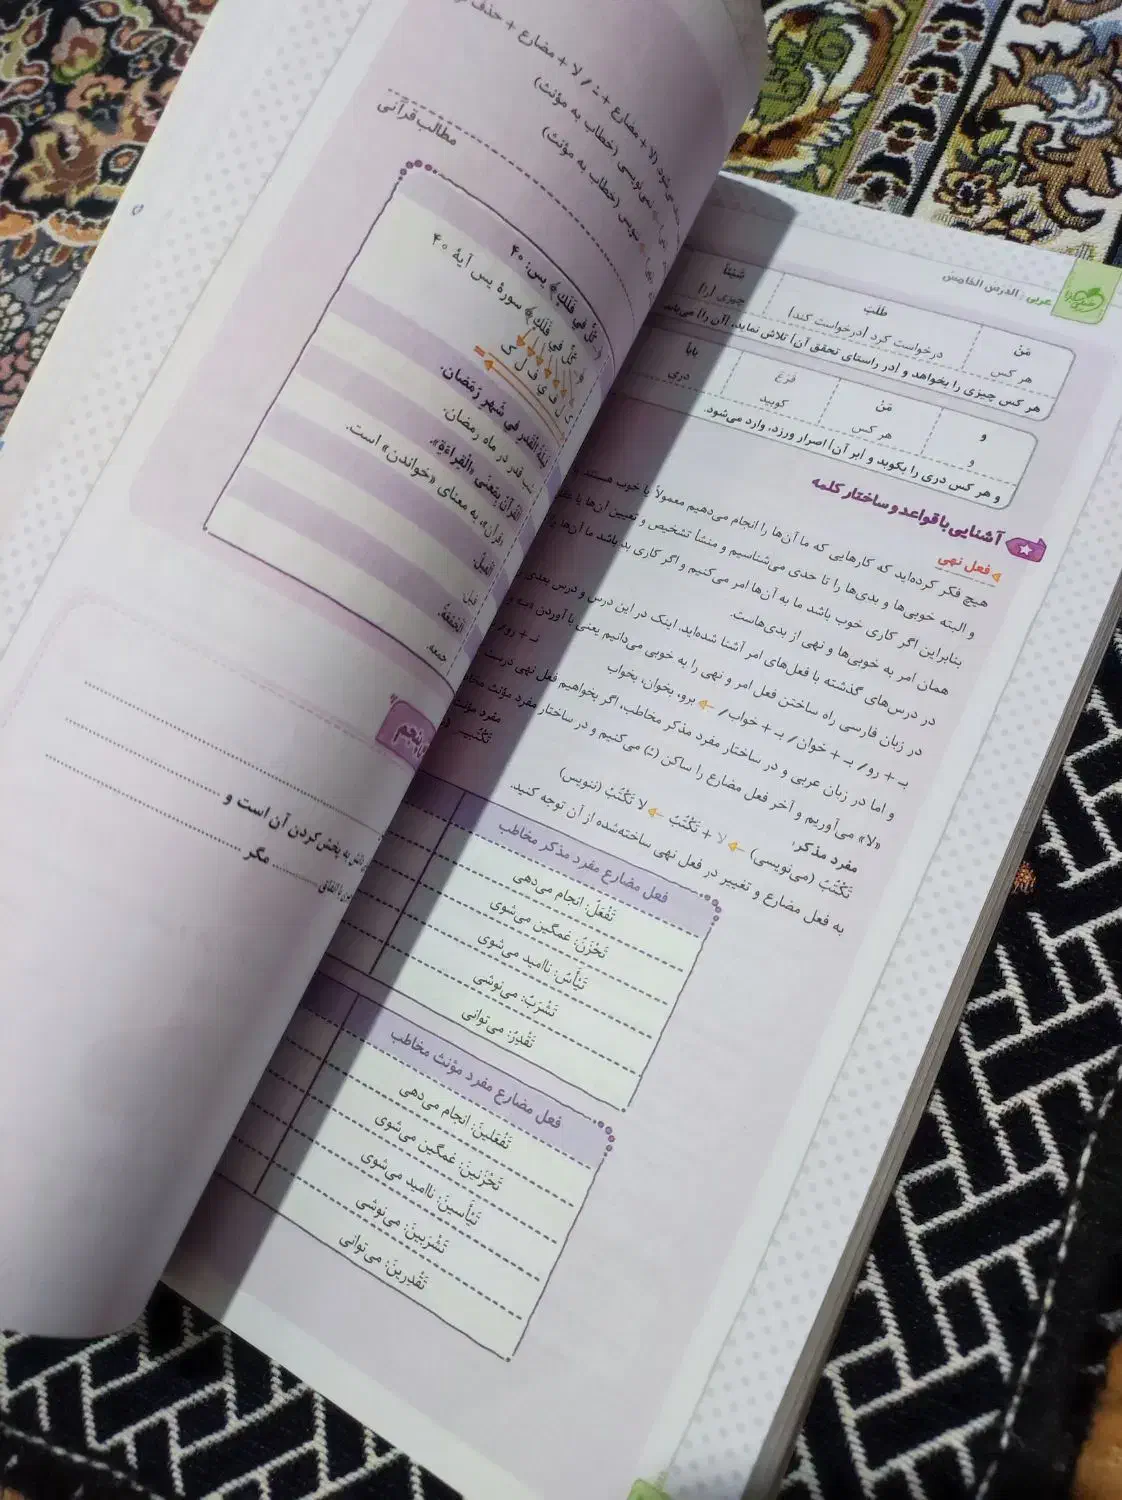 عربی : الدرس الخامس
مَنْ
طَلَبَ
شَیْئاً
هر کس
درخواست کرد [درخواست کند]
چیزی [را]
هر کس چیزی را بخواهد و [در راستای تحقق آن] تلاش نماید، [آن را] می‌یابد
و
مَنْ
قَرَعَ
باباً
و
هر کس
کوبید
دری
و هر کس دری را بکوبد و [بر آن] اصرار ورزد، وارد می‌شود.
آشنایی با قواعد و ساختار کلمه
فعل نهی
هیچ فکر کرده‌اید که کارهایی که ما آن‌ها را انجام می‌دهیم معمولاً یا خوب هستند
و البته خوبی‌ها و بدی‌ها را تا حدی می‌شناسیم و منشأ تشخیص و تعیین آن‌ها یا
بنابراین اگر کاری خوب باشد ما به آن‌ها امر می‌کنیم و اگر کاری بد باشد ما آن‌ها را
همان امر به خوبی‌ها و نهی از بدی‌هاست.
در درس‌های گذشته با فعل‌های امر آشنا شده‌اید. اینک در این درس و درس بعدی
در زبان فارسی راه ساختن فعل امر و نهی را به خوبی می‌دانیم یعنی با آوردن
بـ + رو/ بـ + خوان/ بـ + خواب/ برو، بخوان، بخواب
نـ + رو/
و اما در زبان عربی و در ساختار مفرد مذکر مخاطب، اگر بخواهیم فعل نهی درست
«لا» می‌آوریم و آخر فعل مضارع را ساکن (ـْ) می‌کنیم و در ساختار مفرد مؤنث
مفرد مذکر:
مفرد مؤنث
تَکْتُبُ (می‌نویسی) لا + تَکْتُبُ لا تَکْتُبْ (ننویس)
به فعل مضارع و تغییر در فعل نهی ساخته‌شده از آن توجه کنید.
فعل مضارع مفرد مذکر مخاطب
تَفْعَلُ: انجام می‌دهی
تَحْزَنُ: غمگین می‌شوی
تَیْأَسُ: ناامید می‌شوی
تَشْرَبُ: می‌نوشی
تَقْدِرُ: می‌توانی
فعل مضارع مفرد مؤنث مخاطب
تَفْعَلینَ: انجام می‌دهی
تَحْزَنینَ: غمگین می‌شوی
تَیْأَسینَ: ناامید می‌شوی
تَشْرَبینَ: می‌نوشی
تَقْدِرینَ: می‌توانی
(لا + مضارع + ـْ / لا + مضارع + حذف
می‌نویسی (خطاب به مؤنث)
(خطاب به مؤنث)
مطالب قرآنی
کُلٌّ فی فَلَکٍ﴾ یس: ۴۰
﴿کُلٌّ فی فَلَکٍ﴾ سورهٔ یس آیهٔ ۴۰
ک ل ف ی ف ل ک
لَیْلَةُ الْقَدرِ فی شَهرِ رَمَضان.
شب قدر در ماه رمضان.
الْقُرآنُ بِمَعنی «الْقِراءَةِ».
به معنای «خواندن» است.
الْفیلُ.
فیل
الْجُمُعَةُ.
جمعه.
به پخش‌کردن آن است و
مگر